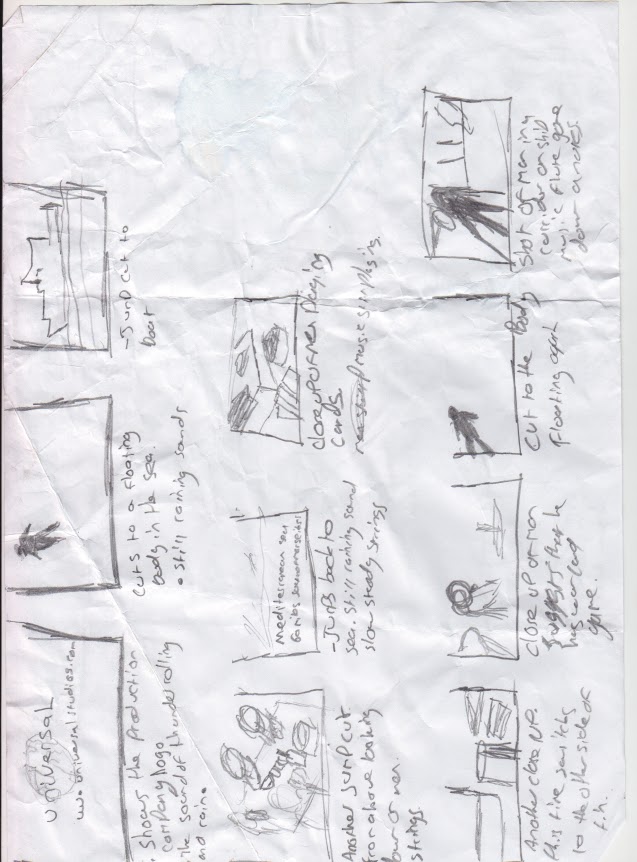 Universal
www.universalstudies.com
• Shows the production
company logo
the sound of thunder rolling
and raine
Cuts to a floating
body in the sea.
• Still raining sounds
- Jump cut to
boat
Another jump cut
from above looking
men.
strings.
mediteranean sea
- Jumps back to
sea. Still raining sound
slow steady strings
close up of men playing
cards
music emphasis.
Another close up.
this time switches
to the other side of
close up of man
suggests that he
has lost
game.
cut to the Body
floating again
Shot of man in
corridor on ship
music flute gone
down an octave.